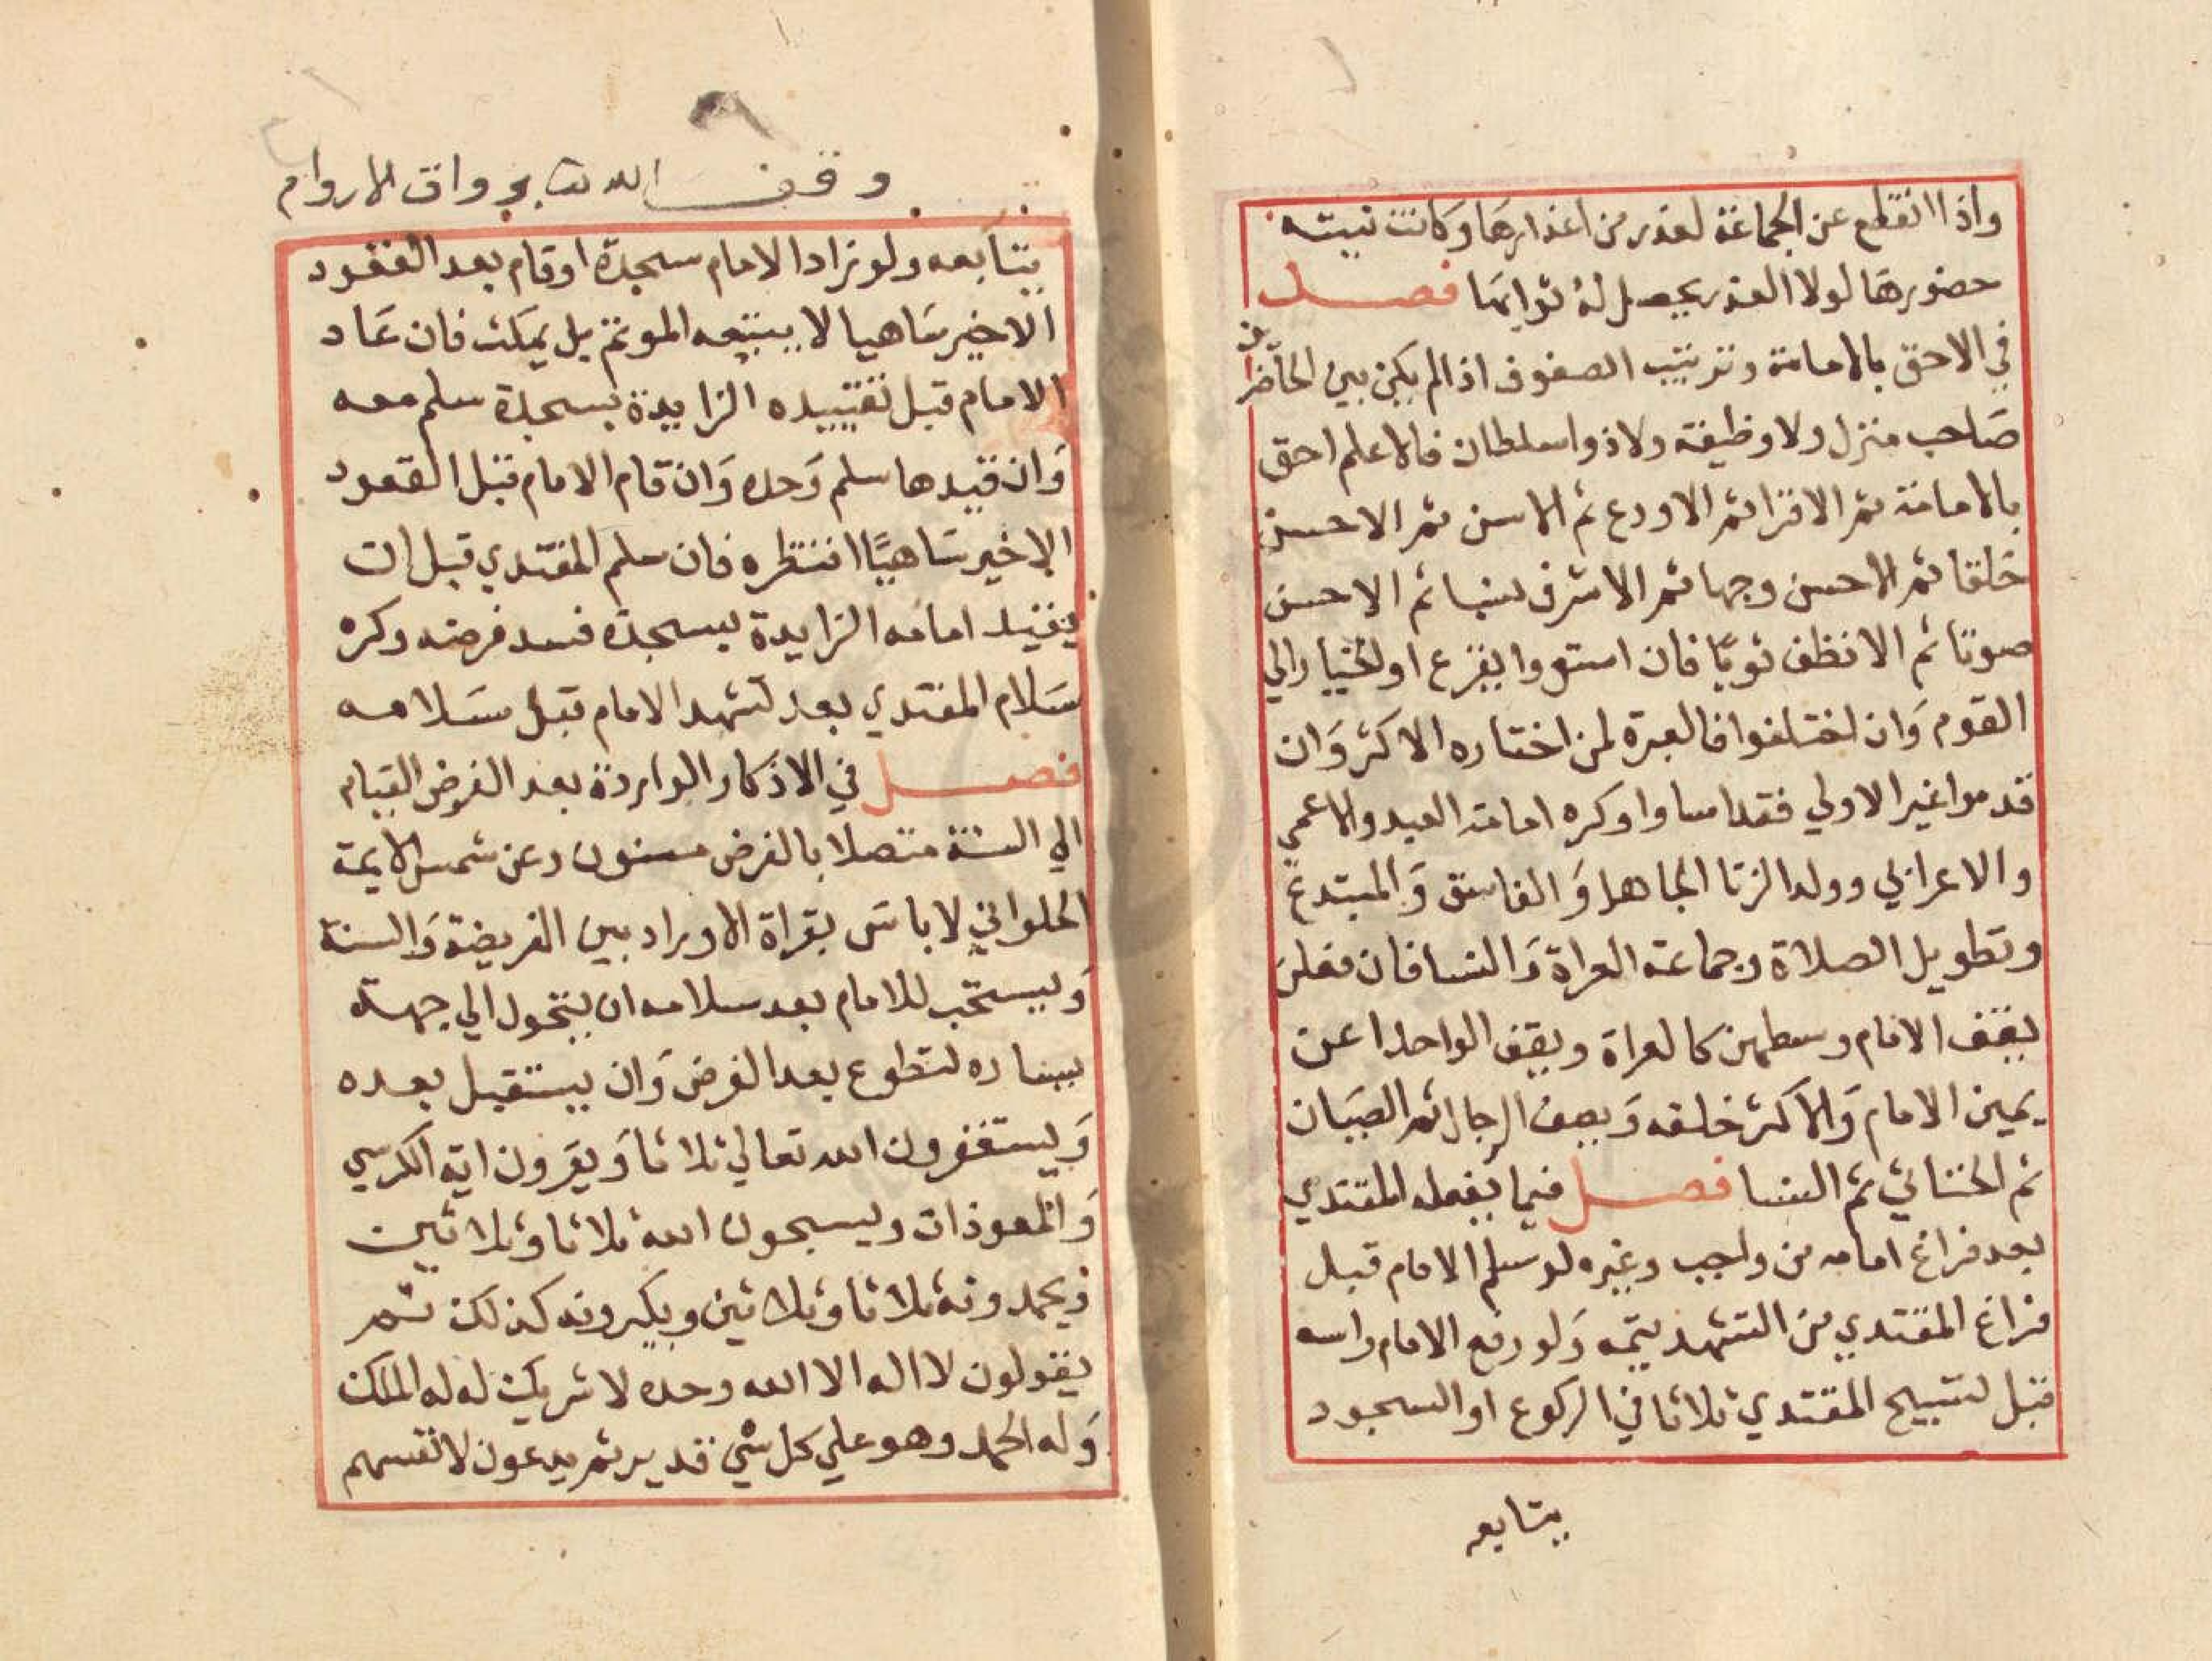 واذا انقطع عن الجماعة لعذر من اعذارها وكانت نيته
حضورها لولا العذر يحصل له ثوابها فصل
في الاحق بالامامة وترتيب الصفوف اذا لم يكن بين الحاضرين
صاحب منزل ولا وظيفة ولا ذو اسلطان فالاعلم احق
بالامامة ثم الاقرا ثم الاورع ثم الاسن ثم الاحسن
خلقا ثم الاحسن وجها ثم الاشرف نسبا ثم الاحسن
صوتا ثم الانظف ثوبًا فان استووا يقرع او الخيار الي
القوم وَان اختلفوا فالعبرة لمن اختاره الاكثر وَان
قدموا غير الاولي فقد اساوا وكره امامة العبد والاعمي
والاعرابي وولد الزنا الجاهل وَالفاسق وَالمبتدع
وتطويل الصلاة وجماعة العراة وَالنسا فان فعلن
يقف الامام وسطهن كالعراة ويقف الواحد اعن
يمين الامام وَالاكثر خلفه وَيصف الرجال ثم الصبيان
ثم الخناثي ثم النسا فصل فيما يفعله المقتدي
بعد فراغ امامه من واجب وغيره لو سلم الامام قبل
فراغ المقتدي من التشهد يتمه وَلو رفع الامام راسه
قبل تسبيح المقتدي ثلاثا في الركوع او السجود
يتابعه
وقف لله تعا برواق الاروام
يتابعه ولو زاد الامام سجدة او قام بعد القعود
الاخير سَاهيا لا يتبعه الموتم بل يمكث فان عَاد
الامام قبل تقييده الزايدة بسجدة سلم معه
وَان قيدها سلم وَحده وَان قام الامام قبل القعود
الاخير سَاهيًا انتظره فان سلم المقتدي قبل ان
يقيد امامه الزايدة بسجدة فسد فرضه وكره
سَلام المقتدي بعد تشهد الامام قبل سَلامه
فصل في الاذكار الواردة بعد الفرض القيام
الي السنة متصلا بالفرض مسنون وعن شمس الايمة
الحلواني لا باس بقراة الاوراد بين الفريضة وَالسنة
وَيستحب للامام بعد سلامه ان يتحول الي جهة
يساره لتطوع بعد الفرض وَان يستقبل بعده
وَيستغفرون الله تعالي ثلاثا وَيقرون اية الكرسي
وَالمعوذات ويسبحون الله ثلاثا وثلاثين
ويحمدونه ثلاثا وثلاثين ويكبرونه كذلك ثم
يقولون لا اله الا الله وحده لا شريك له له الملك
وَله الحمد وهو علي كل شي قدير ثم يدعون لانفسهم